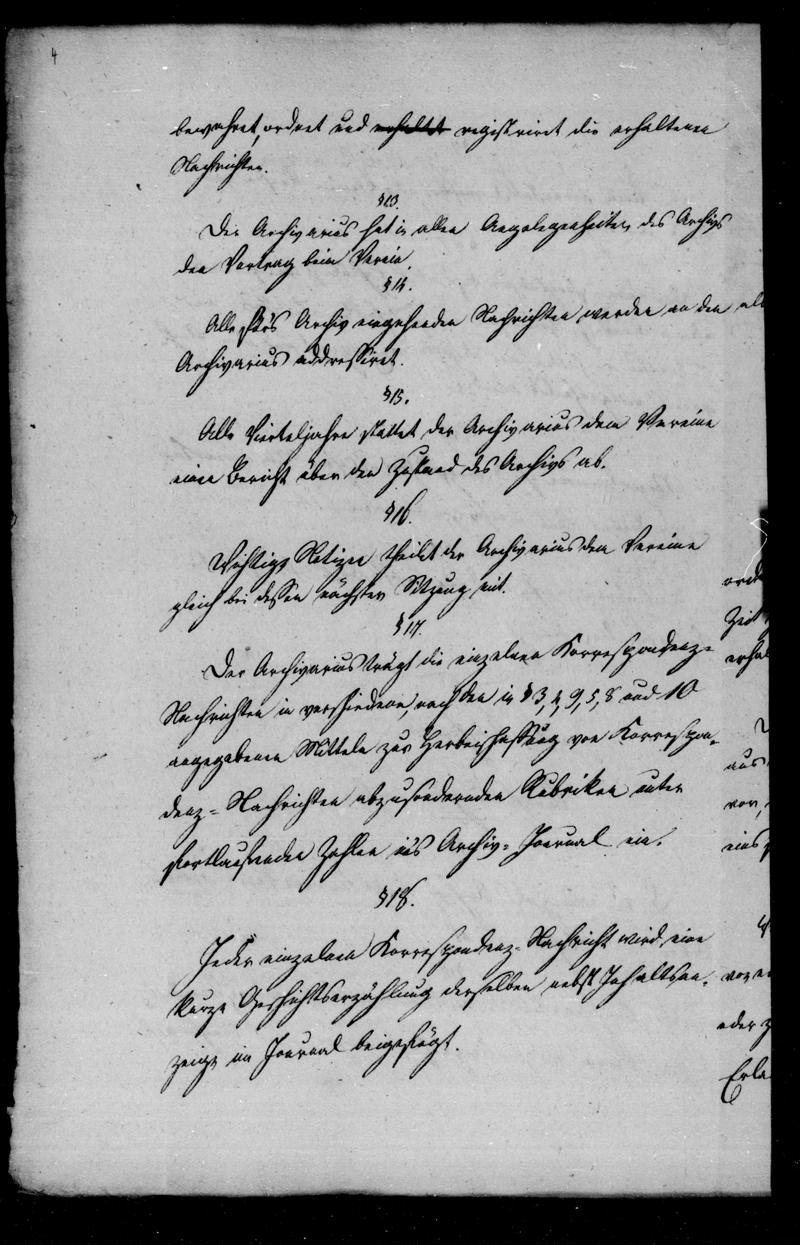 4
bewahret, ordnet und erhaltet registriret die erhaltenen
Nachrichten.
§ 13.
Der Archivarius hat in allen Angelegenheiten des Archivs
den Vortrag beim Verein.
§ 14.
Alle für's Archiv eingehenden Nachrichten werden an den
Archivarius addressiret.
§ 15.
Alle Vierteljahre stattet der Archivarius dem Vereine
einen Bericht über den Zustand des Archivs ab.
§ 16.
Wichtige Notizen theilet der Archivarius dem Vereine
gleich bei dessen nächster Sitzung mit.
§ 17.
Der Archivarius trägt die einzelnen Korrespondenz-
Nachrichten in verschiedene, nach den in § 3, 4, 9, 5, 8 und 10
angegebenen Mitteln zur Herbeischaffung von Korrespon-
denz-Nachrichten abzusondernden Rubriken unter
fortlaufenden Zahlen in's Archiv-Journal ein.
§ 18.
Jeder einzelnen Korrespondenz-Nachricht wird eine
kurze Geschichtserzählung derselben nebst Inhaltsan-
zeige im Journal beigefügt.